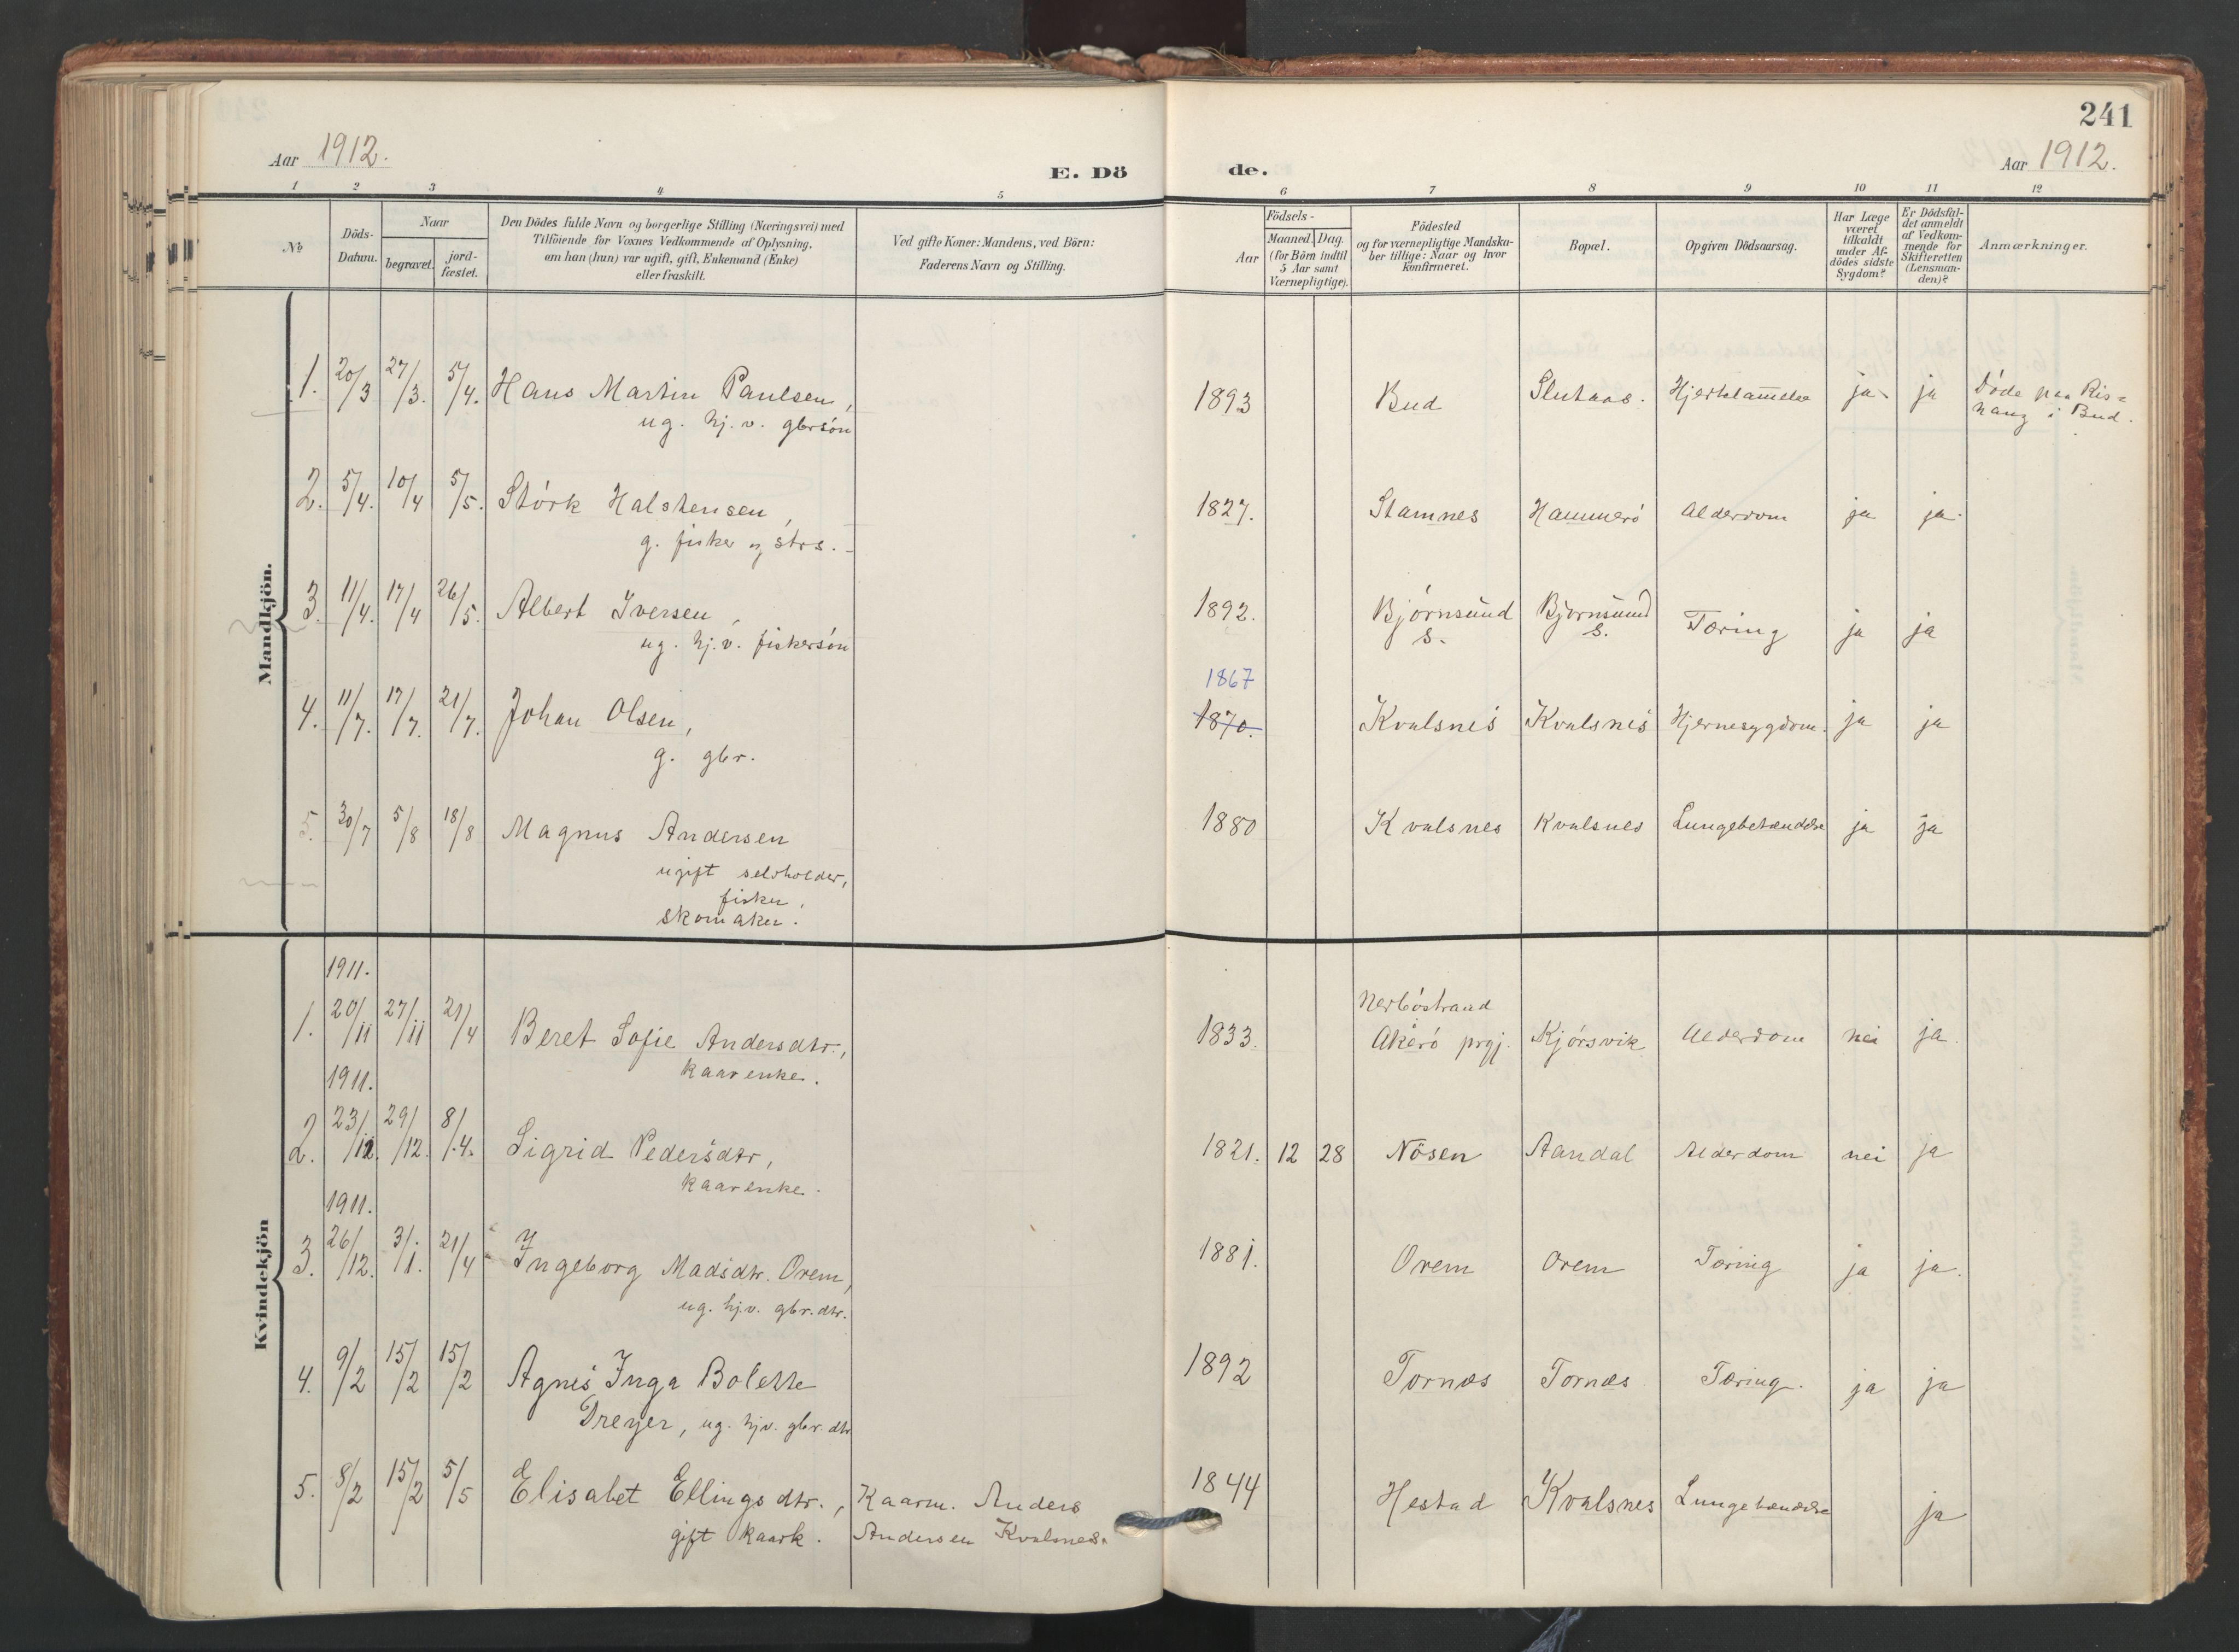 241
Aar 1912.
E. Dö
de.
Aar 1912.
1 2 3 4 5 6 7 8 9 10 11 12
No
Döds-
Datum.
Naar
begravet.
jord-
fæstet.
Den Dödes fulde Navn og borgerlige Stilling (Næringsvei) med
Tilföiende for Voxnes Vedkommende af Oplysning,
om han (hun) var ugift, gift, Enkemand (Enke)
eller fraskilt.
Ved gifte Koner: Mandens, ved Börn:
Faderens Navn og Stilling.
Födsels-
Aar
Maaned. Dag.
(for Börn indtil
5 Aar samt
Værnepligtige).
Födested
og for værnepligtige Mandska-
ber tillige: Naar og hvor
konfirmeret.
Bopæl.
Opgiven Dödsaarsag.
Har Læge
været
tilkaldt
under Af-
dödes sidste
Sygdom?
Er Dödsfal-
det anmeldt
af Vedkom-
mende for
Skifteretten
(Lensman-
den)?
Anmærkninger.
Mandkjön.
1. 20/3 27/3. 5/4. Hans Martin Paulsen, 1893 Bud Hjerteklammelse ja ja Döde paa Ris=
ug. hj. v. gbrsön hang i Bud.
2. 5/4. 10/4 5/5. Störk Halstensen, 1827. Stamnes Hammerö Alderdom ja ja.
g. fisker og strs.
3. 11/4. 17/4 26/5. Albert Iversen, 1892. Björnsund Björnsund Tæring ja ja
ug. hj. v. fiskersön s. s.
1867
4. 11/7. 17/7. 21/7. Johan Olsen, 1870. Kvalsnes Kvalsnes Hjernesygdom. ja ja
g. gbr.
5. 30/7 5/8 18/8 Magnus Andersen 1880 Kvalsnes Kvalsnes Lungebetændelse ja ja
ugift selvholder,
fisker,
skomaker.
Kvindekjön
1911.
Nerböstrand
1. 20/11 27/11 21/4 Beret Sofie Andersdtr., 1833. Akerö prgj. Kjörsvik Alderdom nei ja.
kaarenke.
1911.
2. 23/12. 29/12. 8/4. Sigrid Pedersdtr, 1821. 12 28 Nösen Aandal Alderdom nei ja
kaarenke.
1911.
3. 26/12. 3/1. 21/4 Ingeborg Madsdtr. Orem, 1881. Orem Orem Tæring ja ja.
ug. hj.v. gbr.dtr.
4. 9/2 15/2 15/2 Agnes Inga Bolette 1892 Tornæs Tornæs Tæring. ja ja
Dreyer, ug. hjv. gbr.dtr
5. 8/2 15/2 5/5 Elisabet Ellingsdtr., Kaarm. Anders 1844 Hestad Kvalsnes Lungebetændelse ja
gift kaark. Andersen Kvalnes.